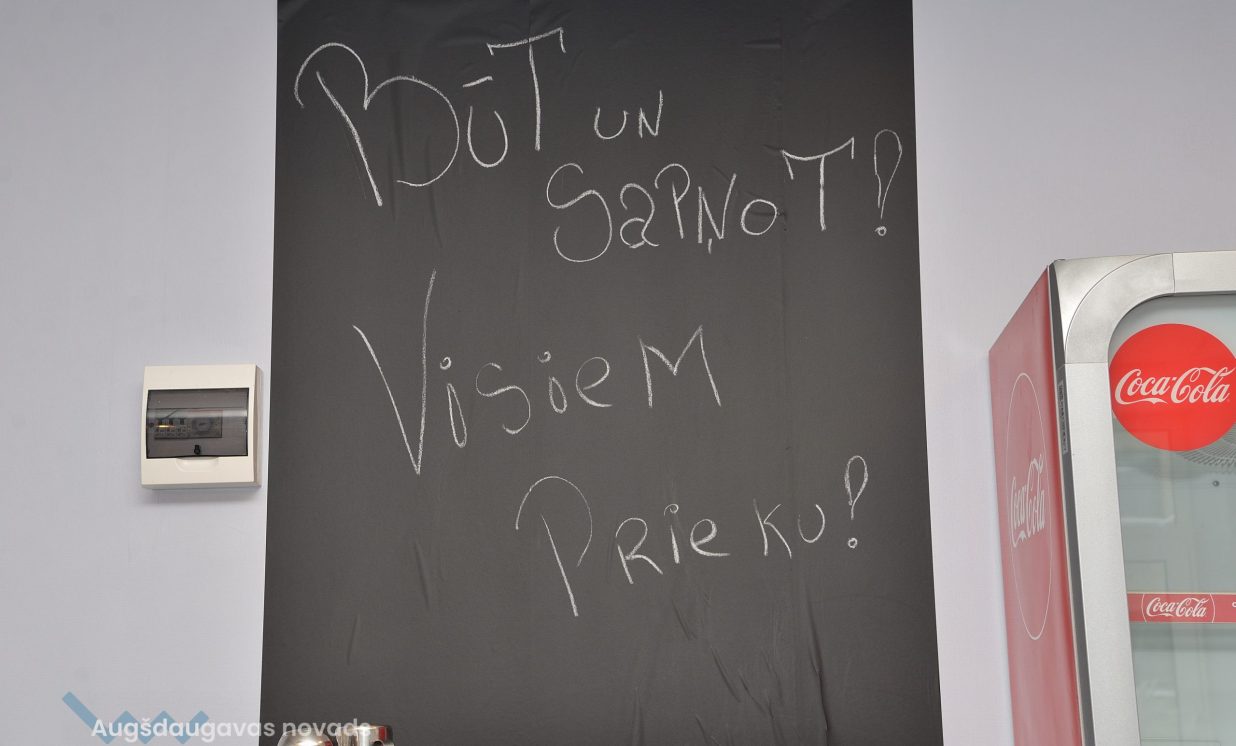 BŪT UN
SAPŅOT!
VISIEM
PRIEKU!
Coca-Cola
Coca-Cola
Coca-Cola
Augšdaugavas novads